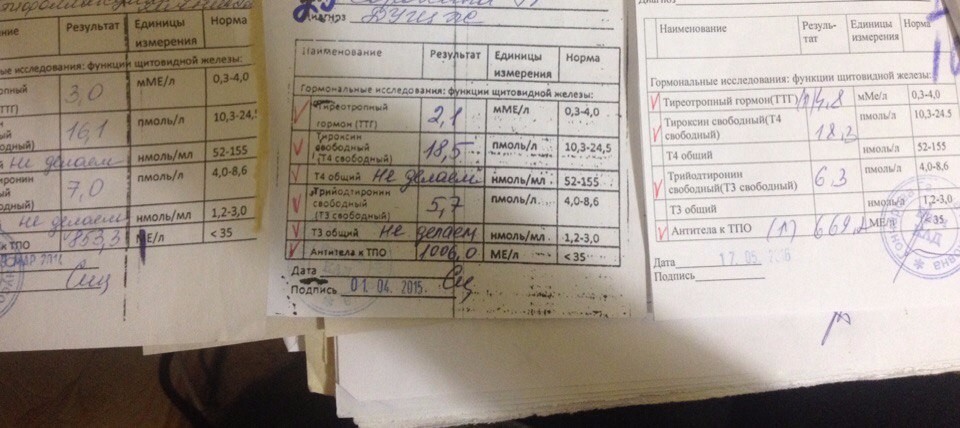 Результат
Единицы
измерения
Норма
функции щитовидной железы:
3,0
мМЕ/л
0,3-4,0
16,1
пмоль/л
10,3-24,5
не делаем
нмоль/мл
52-155
7,0
пмоль/л
4,0-8,6
не делаем
нмоль/мл
1,2-3,0
к ТПО
853,3
МЕ/л
< 35
Диагноз
Наименование
Результат
Единицы
измерения
Норма
Гормональные исследования: функции щитовидной железы:
Тиреотропный
гормон (ТТГ)
2,1
мМЕ/л
0,3-4,0
Тироксин
свободный
(Т4 свободный)
18,5
пмоль/л
10,3-24,5
Т4 общий
не делаем
нмоль/мл
52-155
Трийодтиронин
свободный
(Т3 свободный)
5,7
пмоль/л
4,0-8,6
Т3 общий
не делаем
нмоль/мл
1,2-3,0
Антитела к ТПО
1006,0
МЕ/л
< 35
Дата
Подпись
01. 04. 2015.
Наименование
Резуль-
тат
Единицы
измерения
Норма
Гормональные исследования: функции щитовидной железы:
Тиреотропный гормон(ТТГ)
4,8
мМе/л
0,3-4,0
Тироксин свободный(Т4
свободный)
18,2
пмоль/л
10,3-24.5
Т4 общий
нмоль/л
52-155
Трийодтиронин
свободный(Т3 свободный)
6,3
пмоль/л
4,0-8,6
Т3 общий
нмоль/л
1,2-3,0
Антитела к ТПО
(п)
МЕ/л
< 35
Дата
Подпись